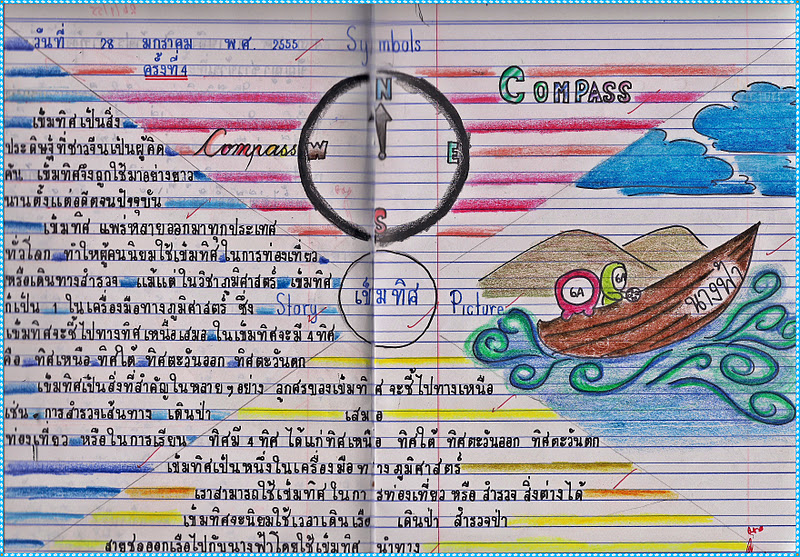 วันที่ 28 มกราคม พ.ศ. 2555
ครั้งที่ 4
Symbols
COMPASS
Compass
N
W
E
S
เข็มทิศเป็นสิ่ง
ประดิษฐ์ที่ชาวจีนเป็นผู้คิด
ค้น เข็มทิศจึงถูกใช้มาอย่างยาว
นานตั้งแต่อดีตจนปัจจุบัน
เข็มทิศ แพร่หลายออกมาทุกประเทศ
ทั่วโลก ทำให้ผู้คนนิยมใช้เข็มทิศ ในการท่องเที่ยว
หรือเดินทางสำรวจ แม้แต่ในวิชาภูมิศาสตร์ เข็มทิศ
ก็เป็น 1 ในเครื่องมือทางภูมิศาสตร์ ซึ่ง
เข็มทิศจะชี้ไปทางทิศเหนือเสมอ ในเข็มทิศจะมี 4 ทิศ
คือ ทิศเหนือ ทิศใต้ ทิศตะวันออก ทิศตะวันตก
Story
เข็มทิศ
Picture
6A
6A
นางฟ้า
เข็มทิศเป็นสิ่งที่สำคัญในหลายๆอย่าง ลูกศรของเข็มทิศ จะชี้ไปทางเหนือ
เช่น การสำรวจเส้นทาง เดินป่า เสมอ
ท่องเที่ยว หรือในการเรียน ทิศมี 4 ทิศ ได้แก่ทิศเหนือ ทิศใต้ ทิศตะวันออก ทิศตะวันตก
เข็มทิศเป็นหนึ่งในเครื่องมือทางภูมิศาสตร์
เราสามารถใช้เข็มทิศในการท่องเที่ยว หรือ สำรวจ สิ่งต่างได้
เข็มทิศจะนิยมใช้เวลาเดินเรือ เดินป่า สำรวจป่า
สายชลออกเรือไปกับนางฟ้าโดยใช้เข็มทิศ นำทาง